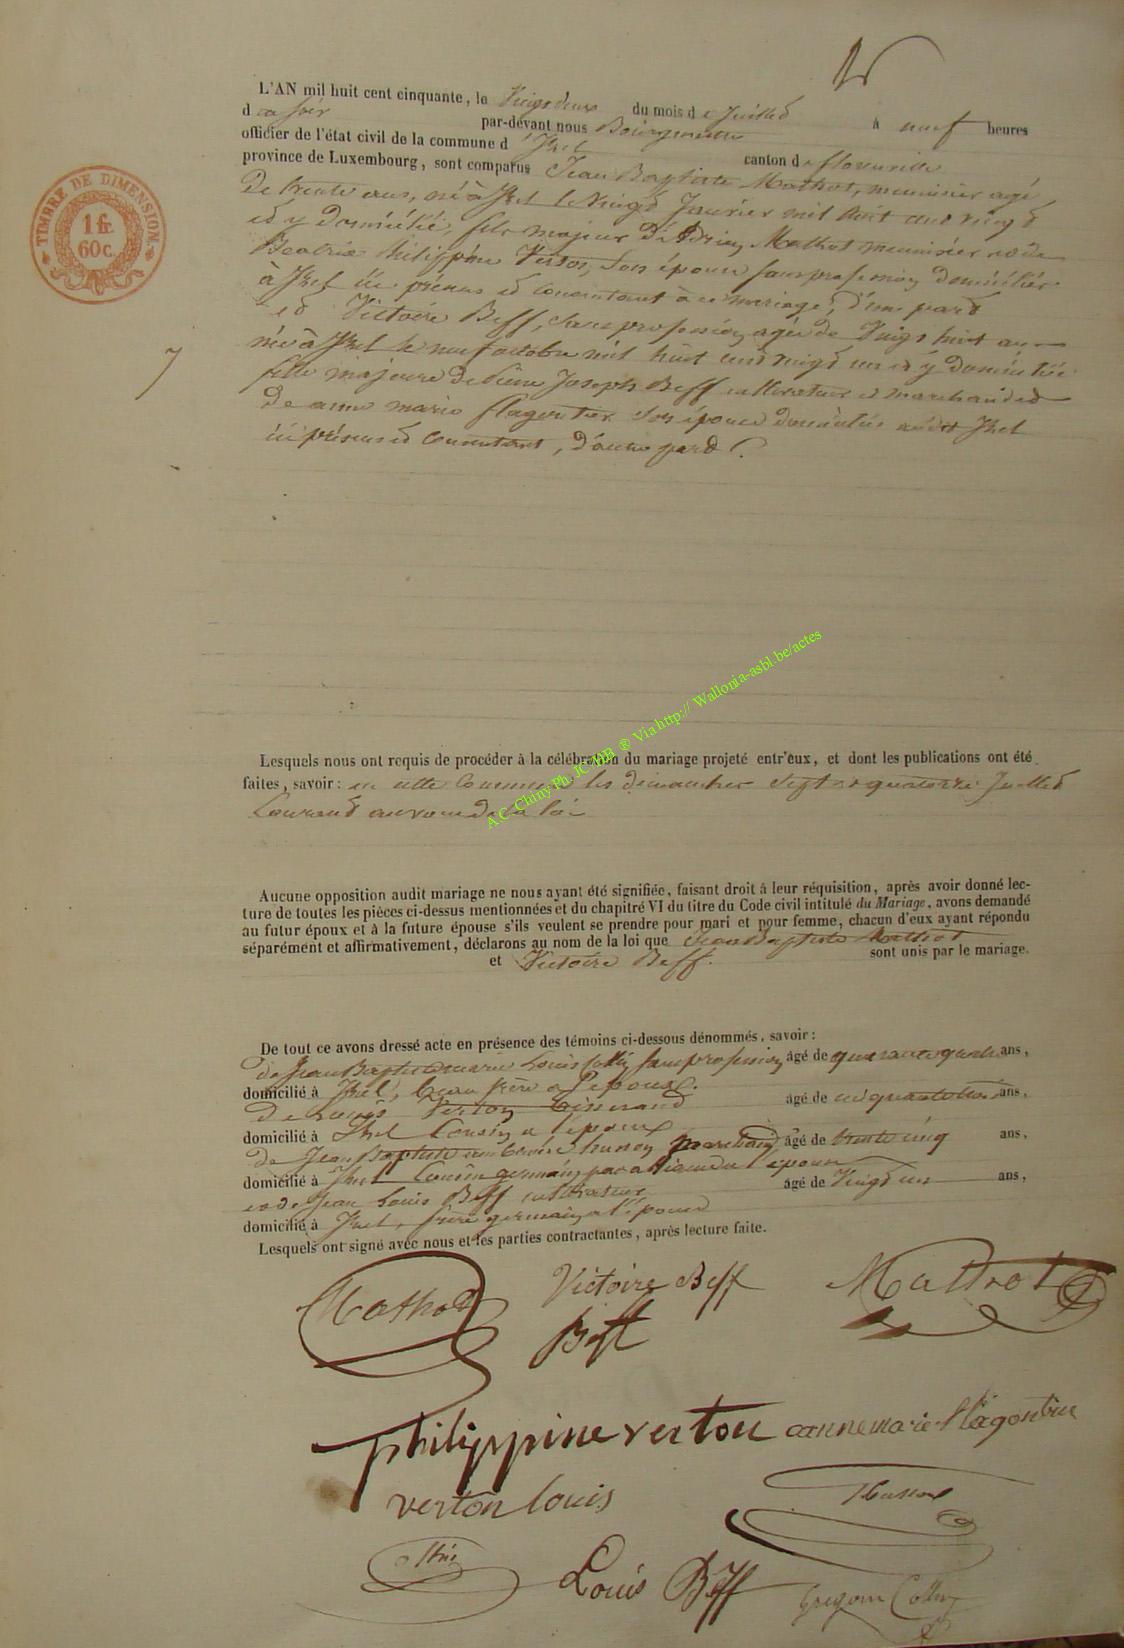 TIMBRE DE DIMENSION.
1 fr.
60 c.
7
L'AN mil huit cent cinquante, le Vingt deux du mois de Juillet à neuf heures
d u soir par-devant nous Bourgmestre
officier de l'état civil de la commune d' Izel canton de florenville
province de Luxembourg, sont comparus Jean Baptiste Mathot, meunier agé
de trente ans, né à Izel le Vingt Janvier mil huit cent vingt
et y domicilié, fils majeur d'Adrien Mathot meunier et de
Beatrix Philippine Verton, son épouse sans profession domiciliés
à Izel ici présens et consentant à ce mariage, d'une part
et Victoire Beff, sans profession agée de Vingt huit ans
née à Izel le neuf octobre mil huit cent vingt un et y domiciliée
fille majeure de Pierre Joseph Beff cultivateur et marchand et
de anne marie flagontier son épouse domiciliés audit Izel
ici présens et consentant, d'autre part.
Lesquels nous ont requis de procéder à la célébration du mariage projeté entr'eux, et dont les publications ont été
faites, savoir: en cette commune les dimanches sept et quatorze Juillet
Courant au vœu de la loi
A.C. Chiny Ph. JC MB ® Via http:// Wallonia-asbl.be/actes
Aucune opposition audit mariage ne nous ayant été signifiée, faisant droit à leur réquisition, après avoir donné lec-
ture de toutes les pièces ci-dessus mentionnées et du chapitre VI du titre du Code civil intitulé du Mariage, avons demandé
au futur époux et à la future épouse s'ils veulent se prendre pour mari et pour femme, chacun d'eux ayant répondu
séparément et affirmativement, déclarons au nom de la loi que Jean Baptiste Mathot
et Victoire Beff. sont unis par le mariage.
De tout ce avons dressé acte en présence des témoins ci-dessous dénommés, savoir:
de Jean Baptiste marie Louis sans profession âgé de quarante quatre ans,
domicilié à Izel, beau frère a l'epoux.
de Louis Verton tisserand âgé de cinquante trois ans,
domicilié à Izel Cousin a l'époux
de Jean Baptiste husson marchand âgé de trente cinq ans,
domicilié à Izel Cousin germain par alliance a l'époux
et de Jean Louis Beff cultivateur âgé de Vingt un ans,
domicilié à Izel, frère germain a l'épouse
Lesquels ont signé avec nous et les parties contractantes, après lecture faite.
Mathot Victoire Beff Mathot
Beff
philippine verton anne marie flagontier
verton louis Husson
Louis Beff